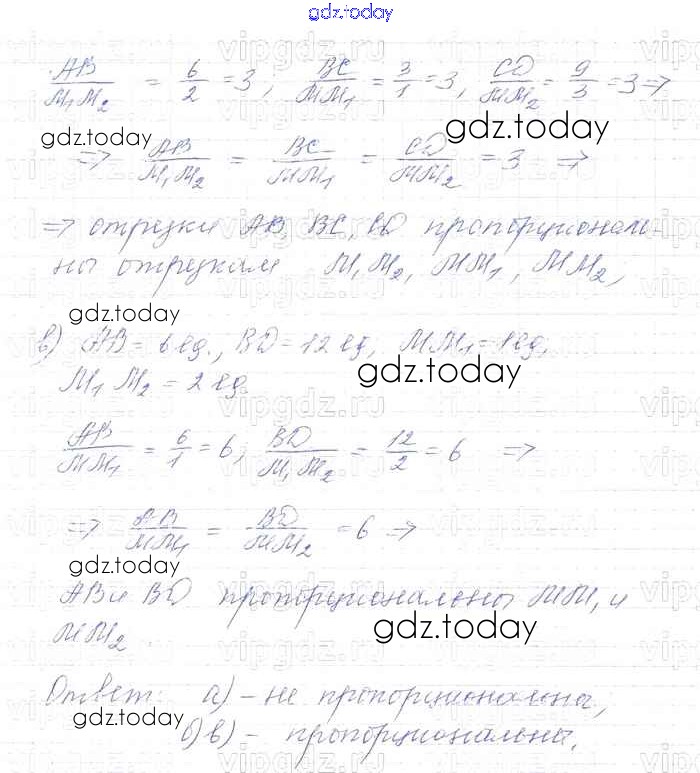 gdz.today
AB/M₁M₂ = 6/2 = 3, BC/MM₁ = 3/1 = 3, CD/MM₂ = 9/3 = 3 ⇒
gdz.today
gdz.today
⇒ AB/M₁M₂ = BC/MM₁ = CD/MM₂ = 3 ⇒
⇒ отрезки AB, BC, CD пропорциональ-
ны отрезкам M₁M₂, MM₁, MM₂,
gdz.today
в) AB = 6 ед., BD = 12 ед, MM₁ = 1 ед,
gdz.today
M₁M₂ = 2 ед.
AB/MM₁ = 6/1 = 6, BD/M₁M₂ = 12/2 = 6 ⇒
⇒ AB/MM₁ = BD/MM₂ = 6 ⇒
gdz.today
AB и BD пропорциональны MM₁ и
MM₂
gdz.today
Ответ: а) – не пропорциональны,
gdz.today
б) в) – пропорциональны.